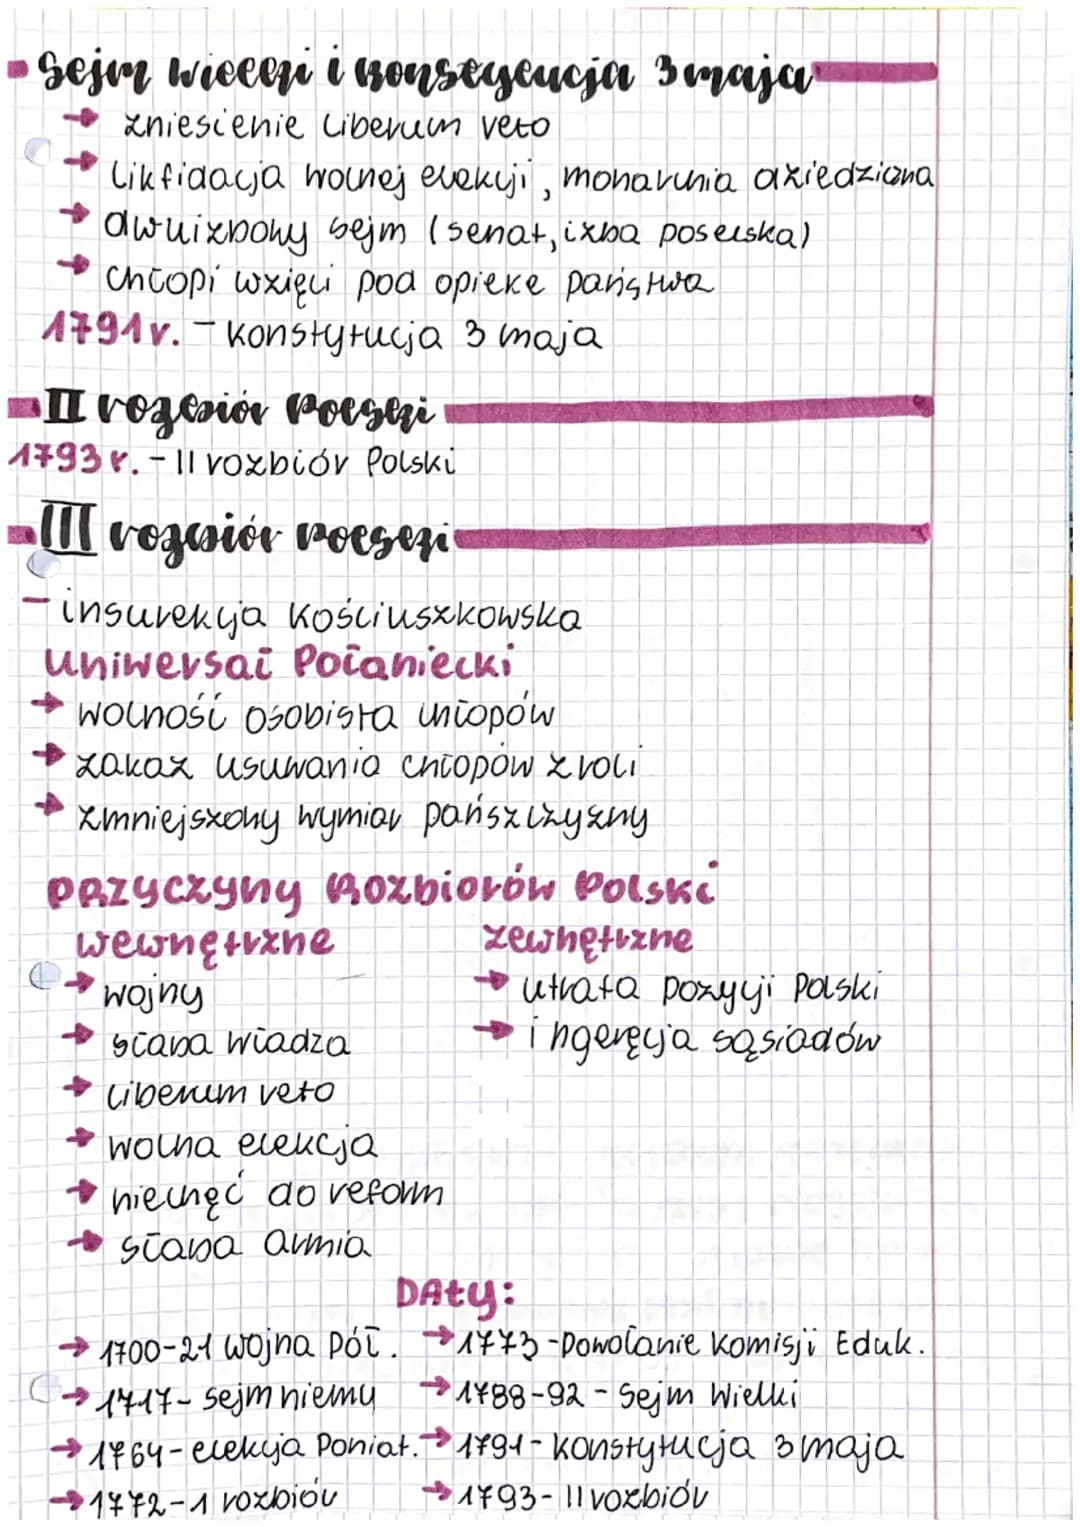 Sejm wielki i konstytucja 3 maja
→ zniesienie liberum veto
→ Likfidacja wolnej elekcji, monarchia dziedziczna
→ dwuizbowy sejm (senat, izba poselska)
→ Chłopi wzięci pod opieke państwa
1791r. - konstytucja 3 maja
II rozbiór Polski
1793r. - II rozbiór Polski
III rozbiór Polski
- insurekcja Kościuszkowska
Uniwersał Połaniecki
→ wolność osobista chłopów
→ zakaz usuwania chłopów z roli
→ zmniejszony wymiar pańszczyzny
Przyczyny Rozbiorów Polski
wewnętrzne zewnętrzne
→ wojny → utrata pozycji Polski
→ słaba władza → ingeręcja sąsiadów
→ liberum veto
→ wolna elekcja
→ niechęć do reform
→ słaba armia
DAty:
→ 1700-21 wojna Pół. → 1773 - Powołanie Komisji Eduk.
→ 1717 - sejm niemy → 1788-92 - Sejm Wielki
→ 1764 - elekcja Poniat. → 1791 - konstytucja 3 maja
→ 1772 - 1 rozbiór → 1793 - II rozbiór